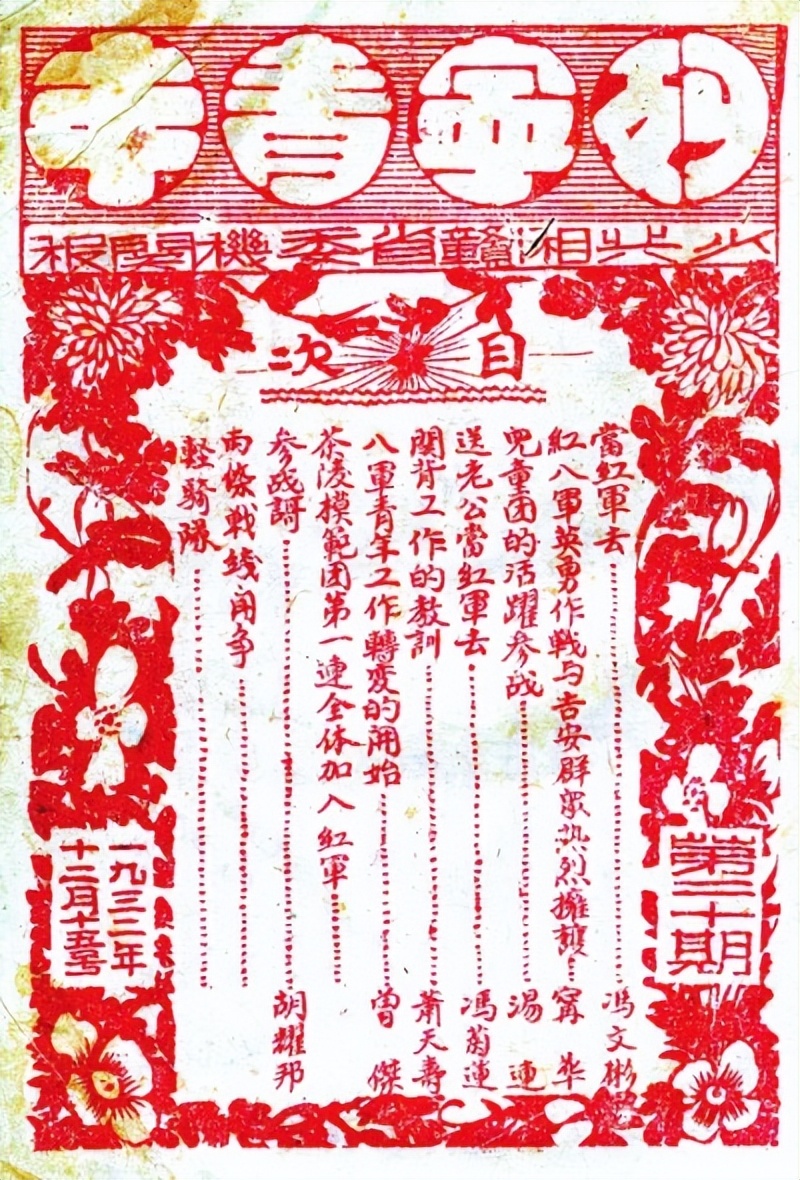 列寧青年
少共湘贛省委機関报
目次
當紅軍去……馮文彬
紅八軍英勇作战与吉安群眾热烈擁護……甯華
兒童团的活躍參战……湯連
送老公當紅軍去……馮菊蓮
関背工作的教訓……蕭天壽
八軍青年工作轉变的開始……曾傑
茶凌模範团第一連全体加入紅軍……
参战謌……胡耀邦
兩條戰綫鬥争……
輕騎隊……
第二十期
一九三二年
十二月十五号